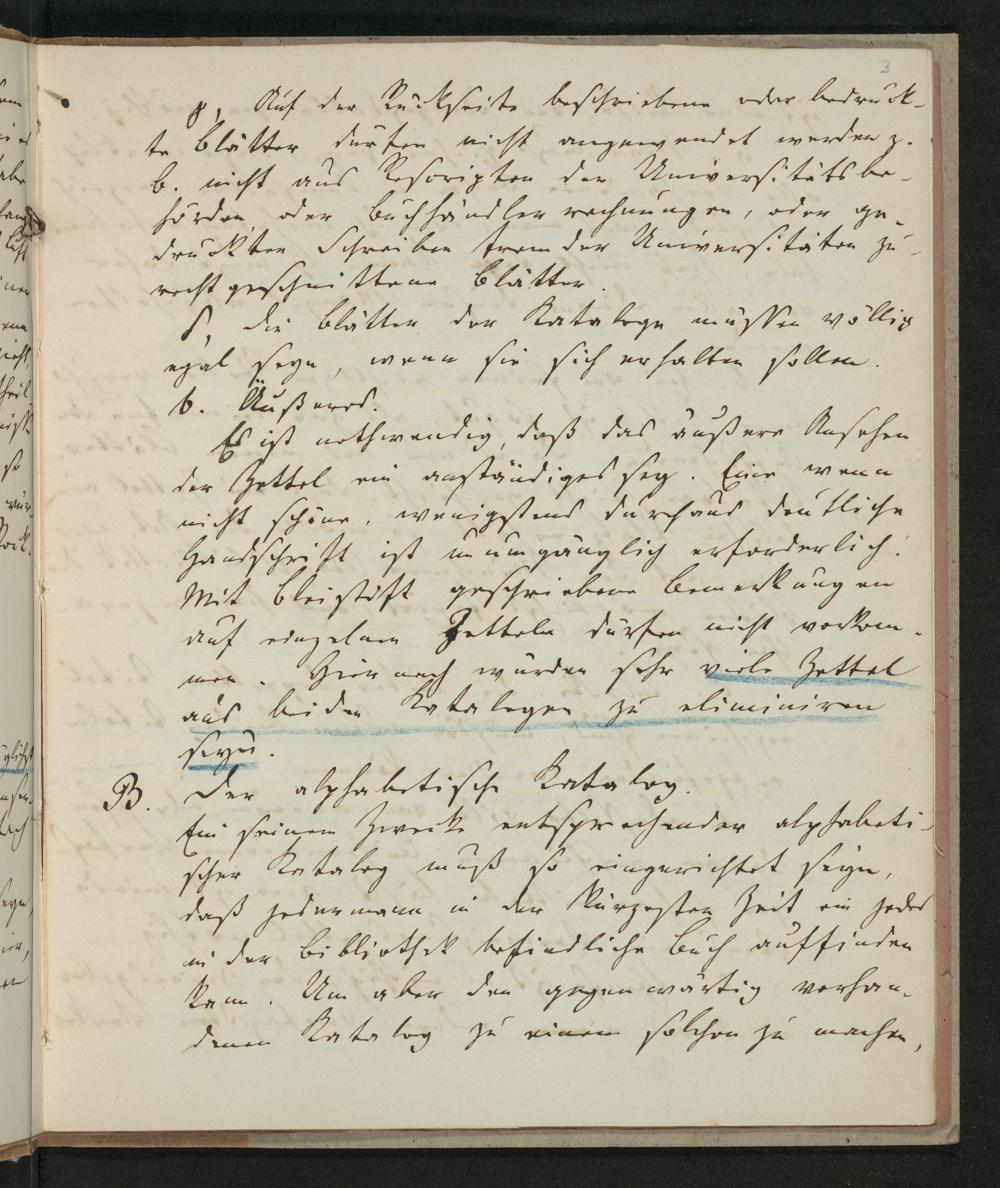 3
γ, Auf der Rückseite beschriebene oder bedruck-
te Blätter dürfen nicht angewendet werden z.
B. nicht aus Rescripten der Universitätsbe-
hörden oder Buchhändlerrechnungen, oder ge-
druckten Schreiben fremder Universitäten zu-
recht geschnittene Blätter.
δ, die Blätter der Kataloge müssen völlig
egal seyn, wenn sie sich erhalten sollen.
b. Äußeres.
Es ist nothwendig, daß das äußere Ansehen
der Zettel ein anständiges sey. Eine wenn
nicht schöne, wenigstens durchaus deutliche
Handschrift ist unumgänglich erforderlich.
Mit Bleistift geschriebene Bemerkungen
auf einzelnen Zetteln dürfen nicht vorkom-
men. Hiernach würden sehr viele Zettel
aus beiden Katalogen zu eliminiren
seyn.
B. Der alphabetische Katalog.
Ein seinem Zwecke entsprechender alphabeti-
scher Katalog muß so eingerichtet seyn,
daß jedermann in der kürzesten Zeit ein jedes
in der Bibliothek befindliche Buch auffinden
kann. Um aber den gegenwärtig vorhan-
denen Katalog zu einem solchen zu machen,